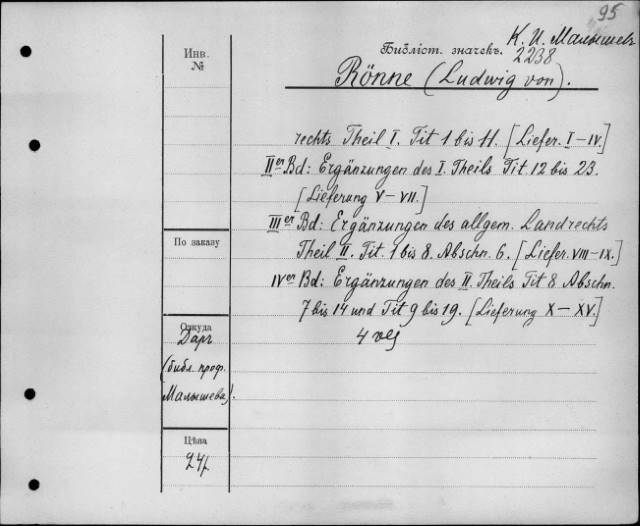 95
К. И. Малышев
Библіот. значекъ. 2238
Rönne (Ludwig von).
Инв.
№
rechts Theil I. Tit 1 bis 11. [Liefer. I–IV.]
IIer Bd: Ergänzungen des I. Theils Tit. 12 bis 23.
[Lieferung V–VII.]
IIIer Bd: Ergänzungen des allgem. Landrechts
Theil II. Tit. 1 bis 8. Abschn. 6. [Liefer. VIII–IX.]
IVer Bd: Ergänzungen des II. Theils Tit 8 Abschn.
7 bis 14 und Tit 9 bis 19. [Lieferung X–XV.]
4
По заказу
Откуда
Даръ
(библ. проф.
Малышева).
Цѣна